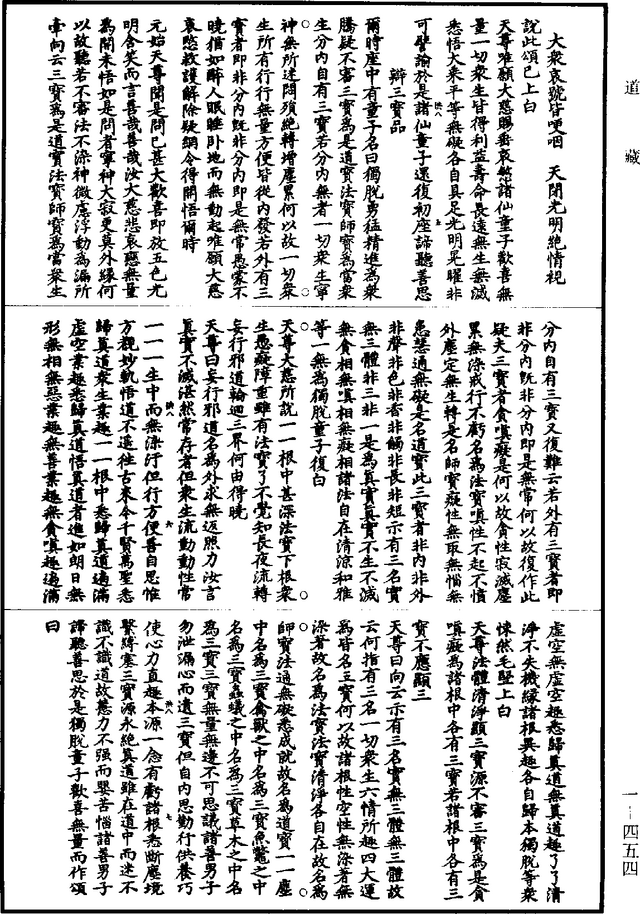 道藏
大衆哀號皆哽咽　天閉光明絶情視
說此頌已上白
天尊唯願大慈賜垂哀愍諸仙童子歡喜無
量一切衆生皆得利益壽命長遠無生無滅
悉悟大乘平等無礙各自具足光明晃曜非
可譬諭於是諸仙童子還復初座諦聽善思
辯三寶品
爾時座中有童子名曰獨脫勇猛精進爲衆
騰疑不審三寶爲是道寶法寶師寶爲當衆
生分內自有三寶若分內無者一切衆生寧
神無所迷悶須絶轉增塵累何以故一切衆
生所有行行無量方便皆從內發若外有三
寶者即非分內旣非分內即是無常愚蒙不
曉猶如醉人眠睡卧地而無動起唯願大慈
哀愍救護解除疑網令得開悟爾時
元始天尊聞是問已甚大歡喜即放五色光
明含笑而言善哉善哉汝大慈悲哀愍無量
爲開未悟如是問者寧神大寂更莫外緣何
以故聽若不審法不染神微塵浮動爲漏所
牽向云三寶爲是道寶法寶師寶爲當衆生
分內自有三寶又復難云若外有三寶者即
非分內旣非分內即是無常何以故復作此
疑夫三寶者貪嗔癡是何以故貪性寂滅塵
累無染戒行不虧名爲法寶嗔性不起不憤
外塵定無生轉是名師寶癡性無取無惱無
患慧通無礙是名道寶此三寶者非內非外
非聲非色非香非觸非長非短示有三名實
無三體非三非一是爲眞實眞實不生不滅
無貪相無嗔相無癡相諸法自在清涼和雅
等一無爲獨脫童子復白
天尊大慈所說一一根中甚深法寶下根衆
生愚癡障重雖有法寶了不覺知長夜流轉
妄行邪道輪迴三界何由得曉
天尊曰妄行邪道名爲外求無返照力汝言
眞實不滅湛然常存者但衆生流動動性常
一一一生中而無染汙但行方便善自思惟
方觀妙軌悟道不遥往古來今千賢萬聖悉
歸眞道衆生業趣一一根中悉歸眞道遍滿
虛空業趣悉歸眞道悟眞道者進如朗日無
形無相無惡業趣無善業趣無貪嗔趣遍滿
虛空無虛空趣悉歸眞道無眞道趣了了清
淨不失機緣諸根異趣各自歸本獨脫等衆
悚然毛竪上白
天尊法體清淨顯三寶源不審三寶爲是貪
嗔癡爲諸根中各有三寶若諸根中各有三
寶不應顯三
天尊曰向云示有三名實無三體無三體故
云何指有三名一切衆生六情所趣四大運
爲皆名三寶何以故諸根性空性無染著無
染著故名爲法寶法寶清淨各自在故名爲
師寶法通無礙悉成就故名爲道寶一一塵
中名爲三寶禽獸之中名爲三寶魚鼈之中
名爲三寶蟲蟻之中名爲三寶草木之中名
爲三寶三寶無量無邊不可思議諸善男子
勿泄漏心而遺三寶但自內思勤行供養巧
使心力直趣本源一念有虧諸根悉斷塵境
緊縛塞三寶源永絶眞道雖在道中而迷不
識不識道故慧力不强而嬰苦惱諸善男子
諦聽善思於是獨脫童子歡喜無量而作頌
曰
一--四五四